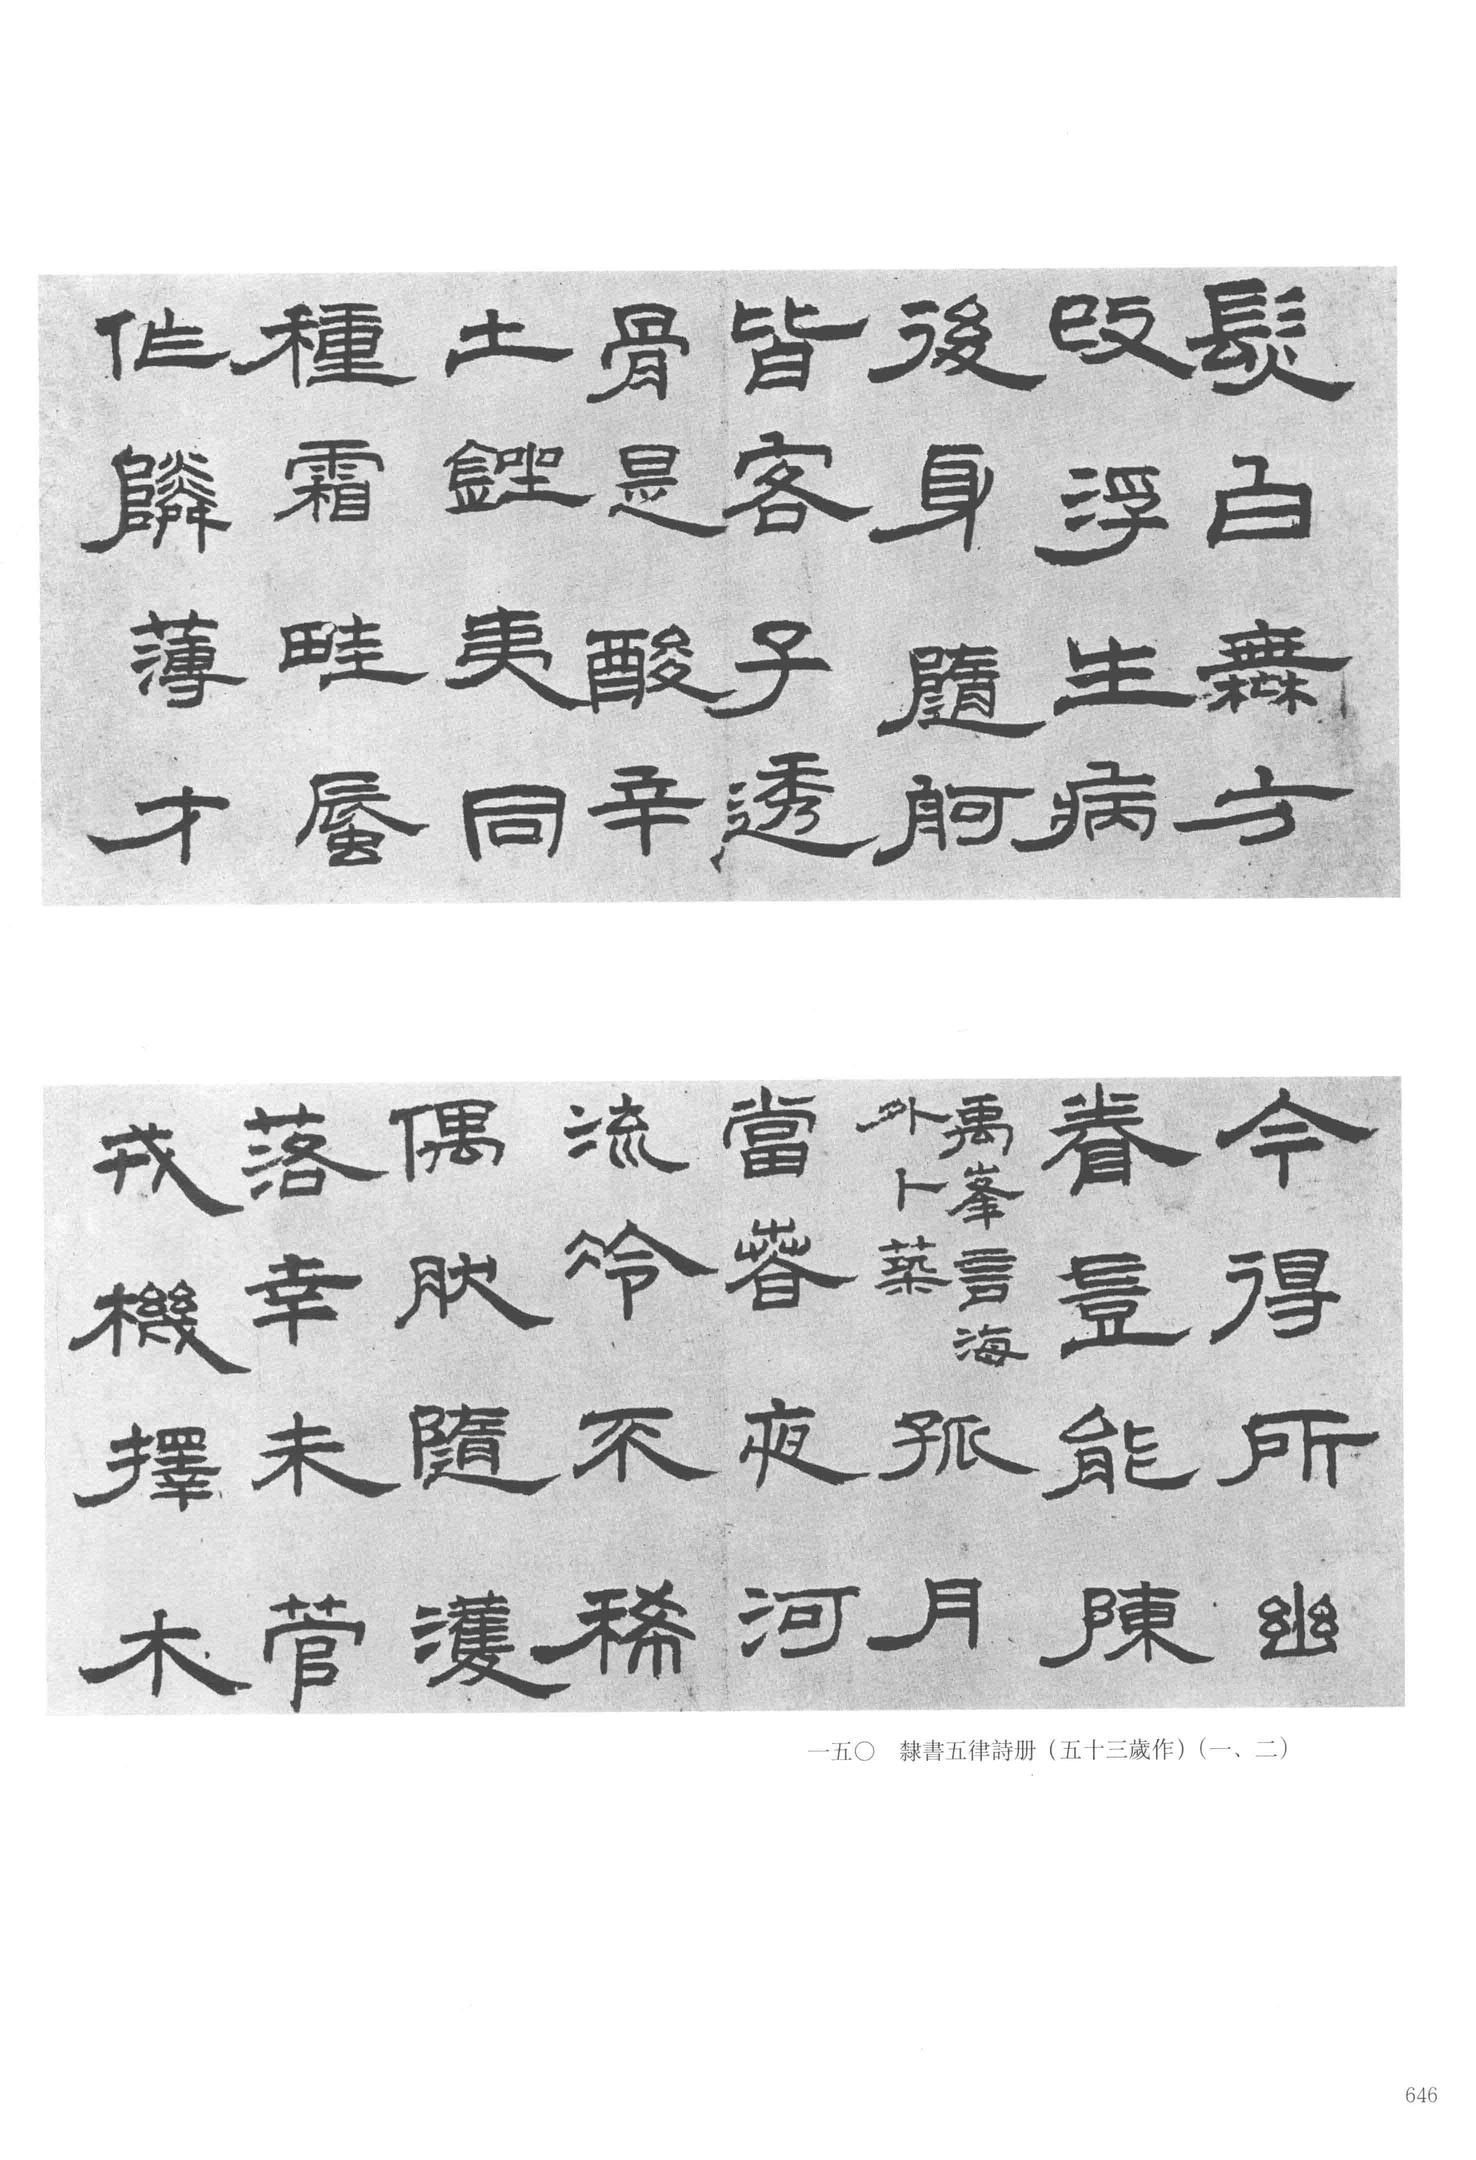 鬓白無方
改浮生病
後身隨舸
皆客子透
骨是酸辛
土銼夷同
種霜畦蜃
作隣薄才
今得所幽
眷豈能陳
禹峯言海
外卜築
孤月
當春夜河
流冷不稀
偶耽隨濩
落幸未菅
戎機擇木
一五〇　隸書五律詩册（五十三歲作）（一、二）
646